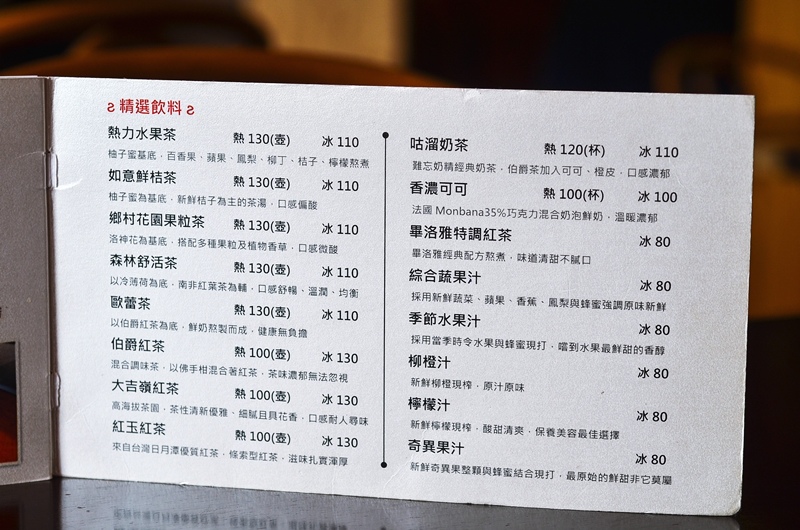 精選飲料
熱力水果茶 熱 130(壺) 冰 110
柚子蜜基底，百香果、蘋果、鳳梨、柳丁、桔子、檸檬熬煮
如意鮮桔茶 熱 130(壺) 冰 110
柚子蜜為基底，新鮮桔子為主的茶湯，口感偏酸
鄉村花園果粒茶 熱 130(壺) 冰 110
洛神花為基底，搭配多種果粒及植物香草，口感微酸
森林舒活茶 熱 130(壺) 冰 110
以冷薄荷為底，南非紅葉茶為輔，口感舒暢、溫潤、均衡
歐蕾茶 熱 130(壺) 冰 110
以伯爵紅茶為底，鮮奶熬製而成，健康無負擔
伯爵紅茶 熱 100(壺) 冰 130
混合調味茶，以佛手柑混合著紅茶，茶味濃郁無法忽視
大吉嶺紅茶 熱 100(壺) 冰 130
高海拔茶園，茶性清新優雅、細膩且具花香，口感耐人尋味
紅玉紅茶 熱 100(壺) 冰 130
來自台灣日月潭優質紅茶，條索型紅茶，滋味扎實渾厚
咕溜奶茶 熱 120(杯) 冰 110
難忘奶精經典奶茶，伯爵茶加入可可、橙皮，口感濃郁
香濃可可 熱 100(杯) 冰 100
法國 Monbana35%巧克力混合奶泡鮮奶，溫暖濃郁
畢洛雅特調紅茶 冰 80
畢洛雅經典配方熬煮，味道清甜不膩口
綜合蔬果汁 冰 80
採用新鮮蔬菜、蘋果、香蕉、鳳梨與蜂蜜強調原味新鮮
季節水果汁 冰 80
採用當季時令水果與蜂蜜現打，嚐到水果最鮮甜的香醇
柳橙汁 冰 80
新鮮柳橙現榨，原汁原味
檸檬汁 冰 80
新鮮檸檬現榨，酸甜清爽、保養美容最佳選擇
奇異果汁 冰 80
新鮮奇異果整顆與蜂蜜結合現打，最原始的鮮甜非它莫屬